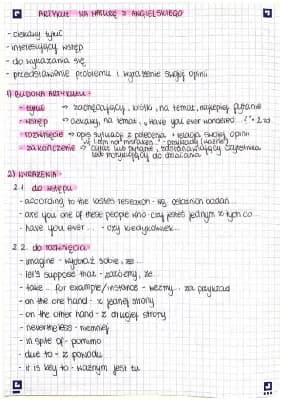 ARTYKUŁ NA MATURĘ Z ANGIELSKIEGO
- ciekawy tytuł
- interesujący wstęp
- do wykazania się
- przedstawienie problemu i wyrażenie swojej opinii
1) BUDOWA ARTYKUŁU:
- tytuł → zachęcający, krótki, na temat, najlepiej pytanie
- wstęp → ciekawy, na temat, "Have you ever wondered ...?" + 2 zd
- rozwinięcie → opis sytuacji z polecenia + relacja swojej opinii
- przykłady
- zakończenie → cytat lub pytanie, czytelnika
lub motywujący do działania
2) WYRAŻENIA:
2.1. do wstępu
- according to the latest research - wg. ostatnich badań...
- are you one of these people who - czy jesteś jednym z tych co...
- have you ever ... - czy kiedykolwiek...
2.2. do rozwinięcia
- imagine - wyobraź sobie, że...
- let's suppose that - załóżmy, że...
- take ... for example/instance - weźmy... za przykład
- on the one hand - z jednej strony
- on the other hand - z drugiej strony
- nevertheless - niemniej
- in spite of - pomimo
- due to - z powodu
- it is key to - ważnym jest tu